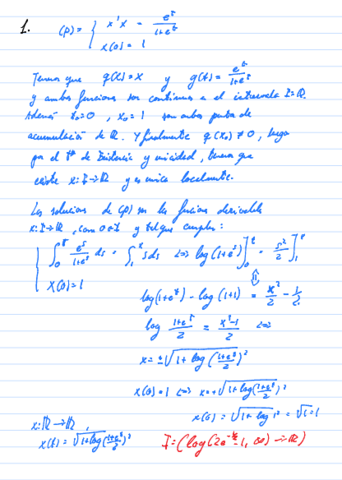 1. (P) = { x'x = e^t/(1+e^t)
x(0) = 1
Tenemos que q(x) = x y g(t) = e^t/(1+e^t)
y ambas funciones son continuas en el intervalo I = ℝ.
t₀ = 0, x₀ = 1 son ambos puntos de
acumulación de ℝ. Y finalmente q(x₀) ≠ 0, luego
por el tª de Existencia y unicidad, tenemos que
existe x: I → ℝ y es única localmente.
Las soluciones de (P) son las funciones derivables
x: I → ℝ, con 0 ∈ I y tal que cumplen:
{ ∫₀^t e^s/(1+e^s) ds = ∫₁^x s ds ⇔ log(1+e^s)]₀^t = s²/2]₁^x
x(0) = 1
log(1+e^t) - log(1+1) = x²/2 - 1/2
log (1+e^t)/2 = (x²-1)/2 ⇔
x = ±√(1+log((1+e^t)/2)²)
x(0) = 1 ⇔ x = +√(1+log((1+e^t)/2)²)
x(0) = √(1+log 1²) = √1 = 1
x: ℝ → ℝ,
x(t) = √(1+log((1+e^t)/2)²)
I = (log(2e^(-1/2) - 1, ∞) → ℝ)